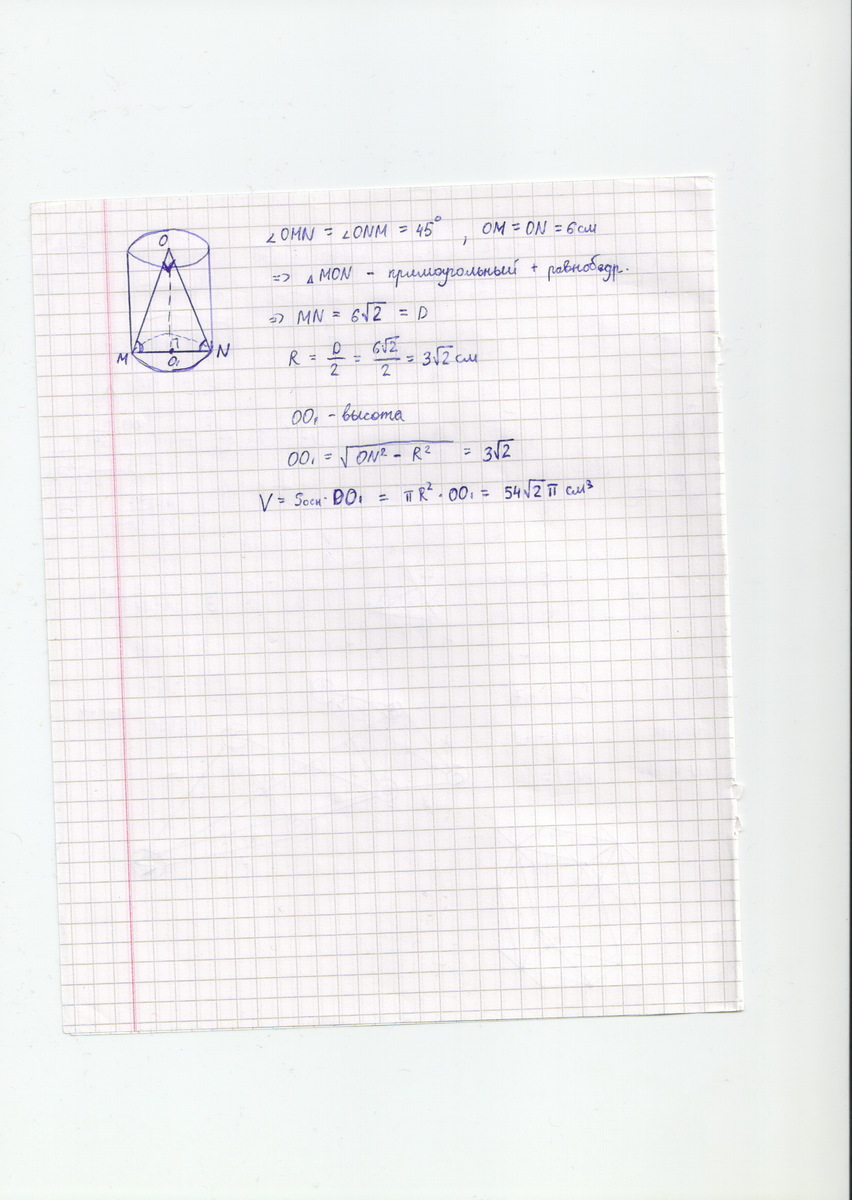 O
M
N
O₁
∠OMN = ∠ONM = 45° , OM = ON = 6см
=> △MON - прямоугольный + равнобедр.
=> MN = 6√2 = D
R = D/2 = 6√2/2 = 3√2 см
OO₁ - высота
OO₁ = √(ON² - R²) = 3√2
V = Sосн · OO₁ = πR² · OO₁ = 54√2 π см³